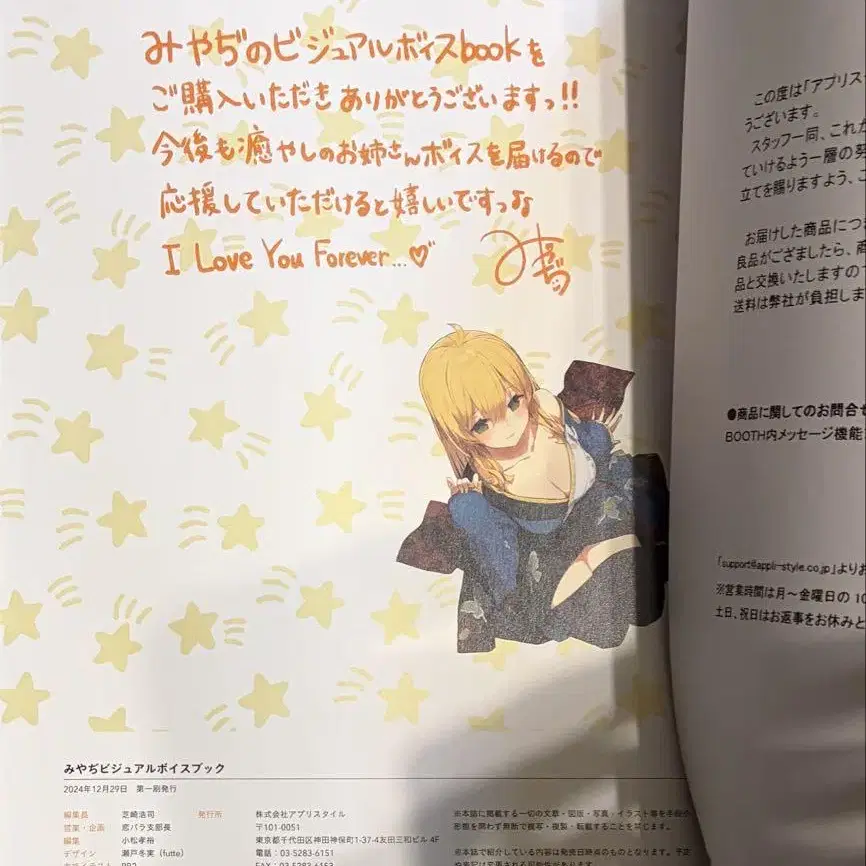 みやぢのビジュアルボイスbookを
ご購入いただきありがとうございますっ!!
今後も癒やしのお姉さんボイスを届けるので
応援していただけると嬉しいですっな
I Love You Forever...♡
みやぢ
みやぢビジュアルボイスブック
2024年12月29日 第一刷発行
編集長 芝崎浩司
営業・企画 恋パラ支部長
編集 小松孝裕
デザイン 瀬戸冬実(futte)
発行所 株式会社アプリスタイル
〒101-0051
東京都千代田区神田神保町1-37-4友田三和ビル 4F
電話:03-5283-6151
※本誌に掲載する一切の文章・図版・写真・イラスト等を手段や
形態を問わず無断で複写・複製・転載することを禁じます。
※本誌で紹介している内容は発売日時点のものとなります。予定
この度は「アプリス
うございます。
スタッフ一同、これか
ていけるよう一層の努
立てを賜りますよう、こ
お届けした商品につき
良品がござましたら、商
品と交換いたしますの
送料は弊社が負担しま
●商品に関してのお問合せ
BOOTH内メッセージ機能
「support@appli-style.co.jp」よりお
※営業時間は月〜金曜日の 10
土日、祝日はお返事をお休みと